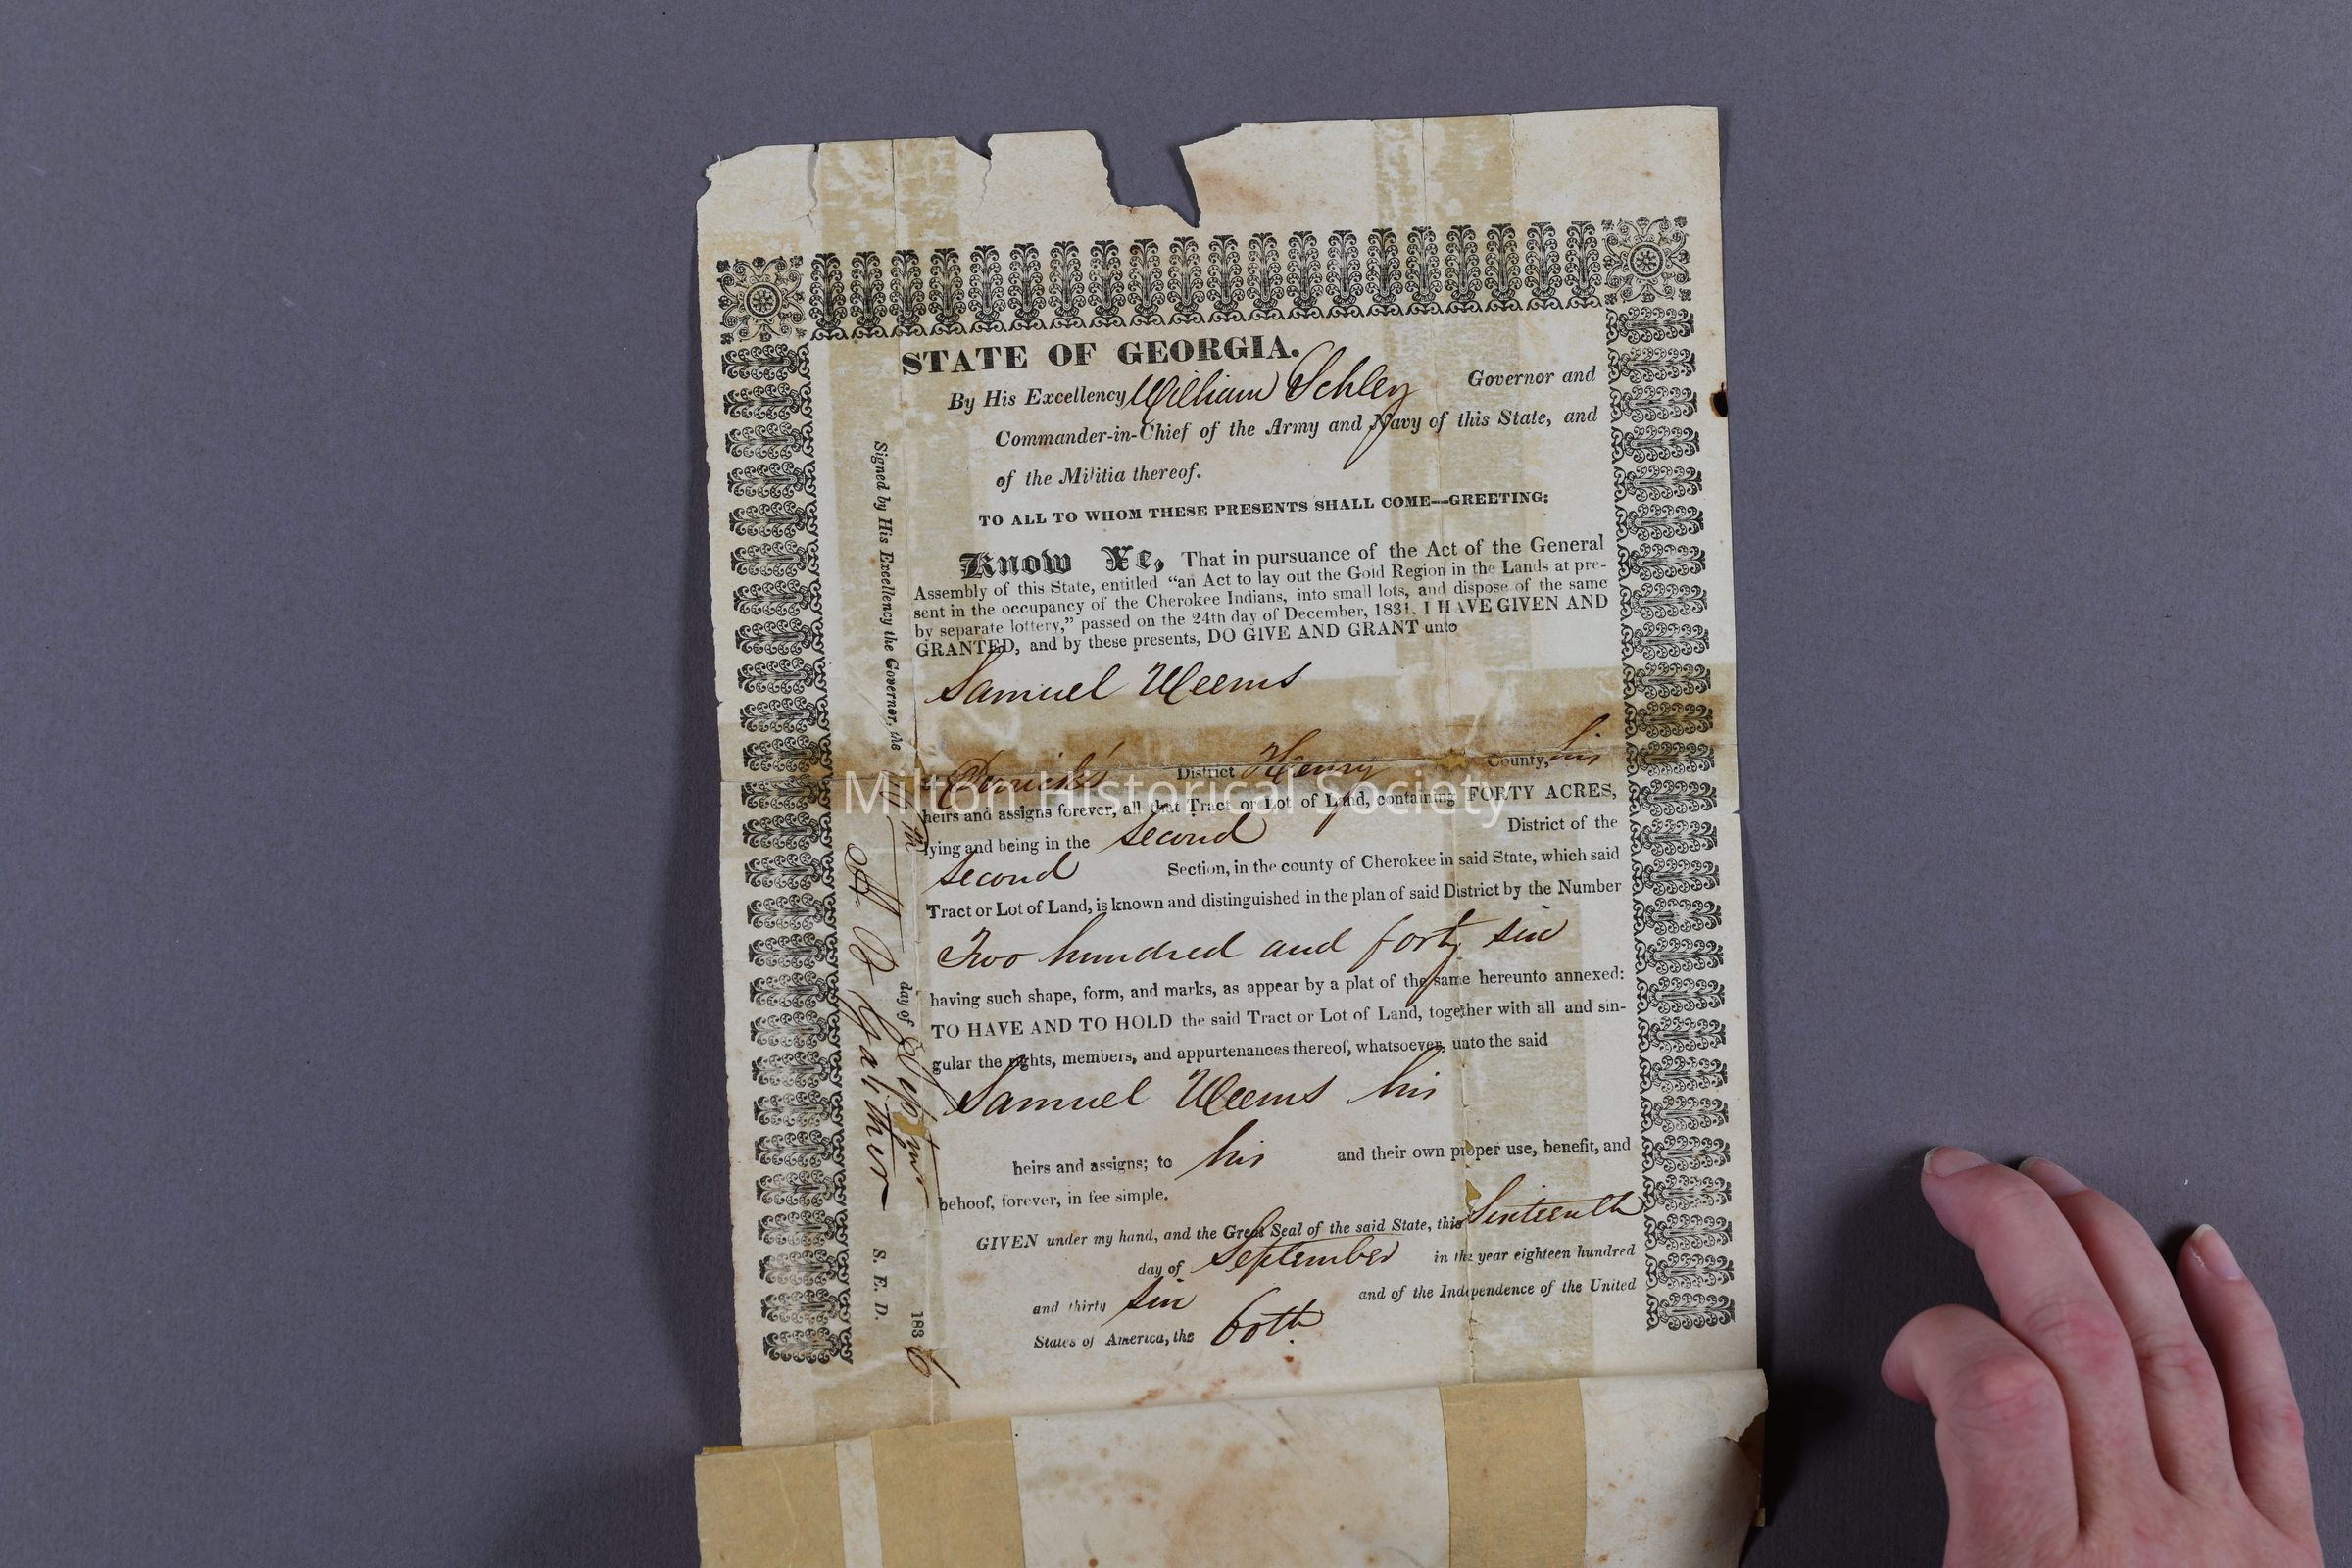 STATE OF GEORGIA.
By His Excellency William Schley Governor and
Commander-in-Chief of the Army and Navy of this State, and
of the Militia thereof.
TO ALL TO WHOM THESE PRESENTS SHALL COME—GREETING:
Know Ye, That in pursuance of the Act of the General
Assembly of this State, entitled “an Act to lay out the Gold Region in the Lands at pre-
sent in the occupancy of the Cherokee Indians, into small lots, and dispose of the same
by separate lottery,” passed on the 24th day of December, 1831, I HAVE GIVEN AND
GRANTED, and by these presents, DO GIVE AND GRANT unto
Samuel Weems
District Henry County, his
heirs and assigns forever, all that Tract or Lot of Land, containing FORTY ACRES,
lying and being in the second District of the
second Section, in the county of Cherokee in said State, which said
Tract or Lot of Land, is known and distinguished in the plan of said District by the Number
Two hundred and forty six
having such shape, form, and marks, as appear by a plat of the same hereunto annexed:
TO HAVE AND TO HOLD the said Tract or Lot of Land, together with all and sin-
gular the rights, members, and appurtenances thereof, whatsoever, unto the said
Samuel Weems his
heirs and assigns; to his and their own proper use, benefit, and
behoof, forever, in fee simple.
GIVEN under my hand, and the Great Seal of the said State, this Sixteenth
day of September in the year eighteen hundred
and thirty six and of the Independence of the United
States of America, the 60th.
Signed by His Excellency the Governor, the
day of Septemr 1836
Gaither S. E. D.
Milton Historical Society